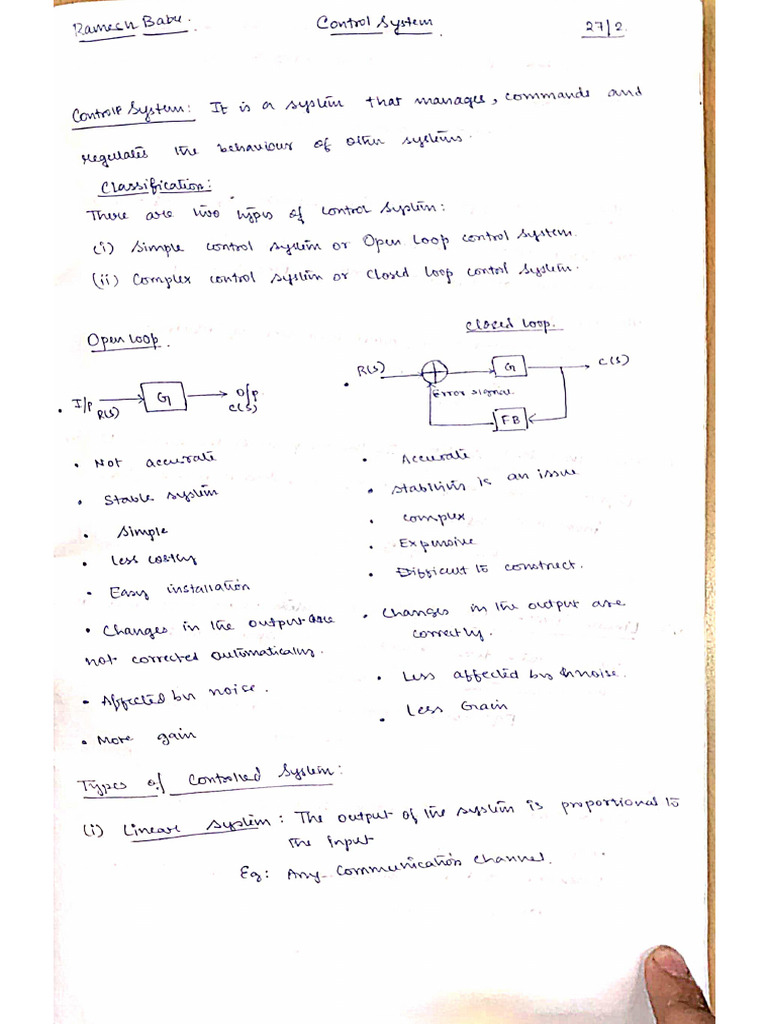 Ramesh Babu.
Control System
27/2
Control System: It is a system that manages, commands and
regulates the behaviour of other systems.
Classification:
There are two types of control system:
(i) Simple control system or Open Loop control system.
(ii) Complex control system or Closed loop control system.
Open Loop.
I/P R(s) G O/P C(s)
• Not accurate
• Stable system
• Simple
• less costly
• Easy installation
• Changes in the output are
not corrected automatically.
• Affected by noise.
• More gain
Closed loop.
R(s) G C(s)
Error signal
FB
• Accurate
• stability is an issue
• complex
• Expensive
• Difficult to construct.
• Changes in the output are
correctly.
• Less affected by noise.
• Less Gain
Types of Controlled System:
(i) Linear System: The output of the system is proportional to
the input
Eg: Any Communication Channel.